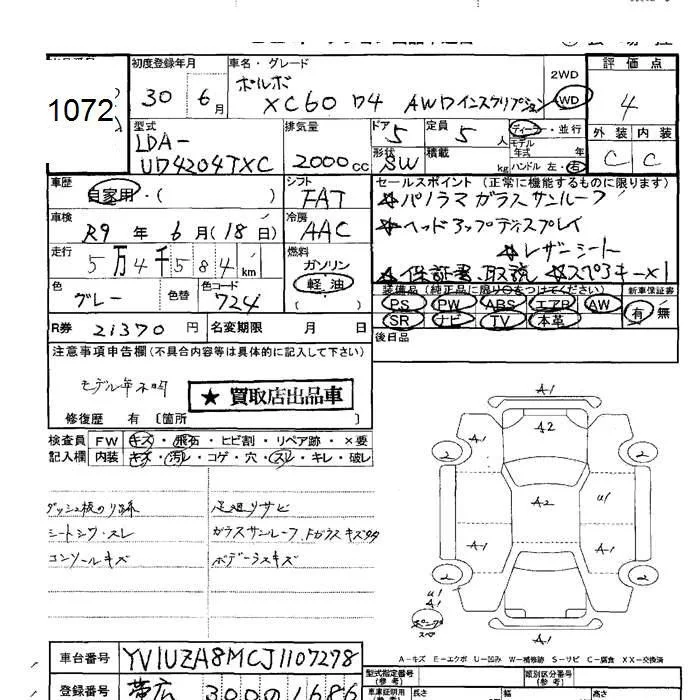 1072
初度登録年月
30 6月
車名・グレード
ボルボ
XC60 D4 AWDインスクリプション
2WD
WD
評価点
4
外装 内装
C C
型式
LDA-
UD4204TXC
排気量
2000cc
ドア 5
形状 SW
定員 5人
積載 kg
ディーラー・並行
モデル年式 年
ハンドル 左・右
車歴
自家用・( )
シフト
FAT
車検
R9年 6月(18日)
冷房
AAC
走行
5万4千584km
燃料
ガソリン
軽油
( )
色
グレー
色替
色コード
724
セールスポイント(正常に機能するものに限ります)
☆パノラマガラスサンルーフ
☆ヘッドアップディスプレイ
☆レザーシート
☆保証書、取説 ☆スペアキー×1
装備品(純正品に限り○をつけてください)
新車保証書
PS PW ABS エアB AW
SR ナビ TV 本革
有 無
R券 21370円
名変期限 月 日
後日品
注意事項申告欄(不具合内容等は具体的に記入して下さい)
モデル年不明
★ 買取店出品車
修復歴 有 〔箇所 〕
検査員 FW キズ・飛石・ヒビ割・リペア跡・×要
記入欄 内装 キズ・汚レ・コゲ・穴・スレ・キレ・破レ
ダッシュ板のり跡
足廻りサビ
シートシワ・スレ
ガラスサンルーフ、Fガラスキズ多々
コンソールキズ
ボデーうスキズ
A1
A1
A2
2
2
A2
U1
A1
A1
2
2
U1
A1
スペアンプ
スマ
A1
A-キズ E-エクボ U-凹み W-補修跡 S-サビ C-腐食 XX-交換済
車台番号 YV1UZA8MCJ1107278
登録番号 帯広 300 の 1686
型式指定番号
(参考)
類別区分番号
(参考)
車庫証明用
長さ
幅
高さ